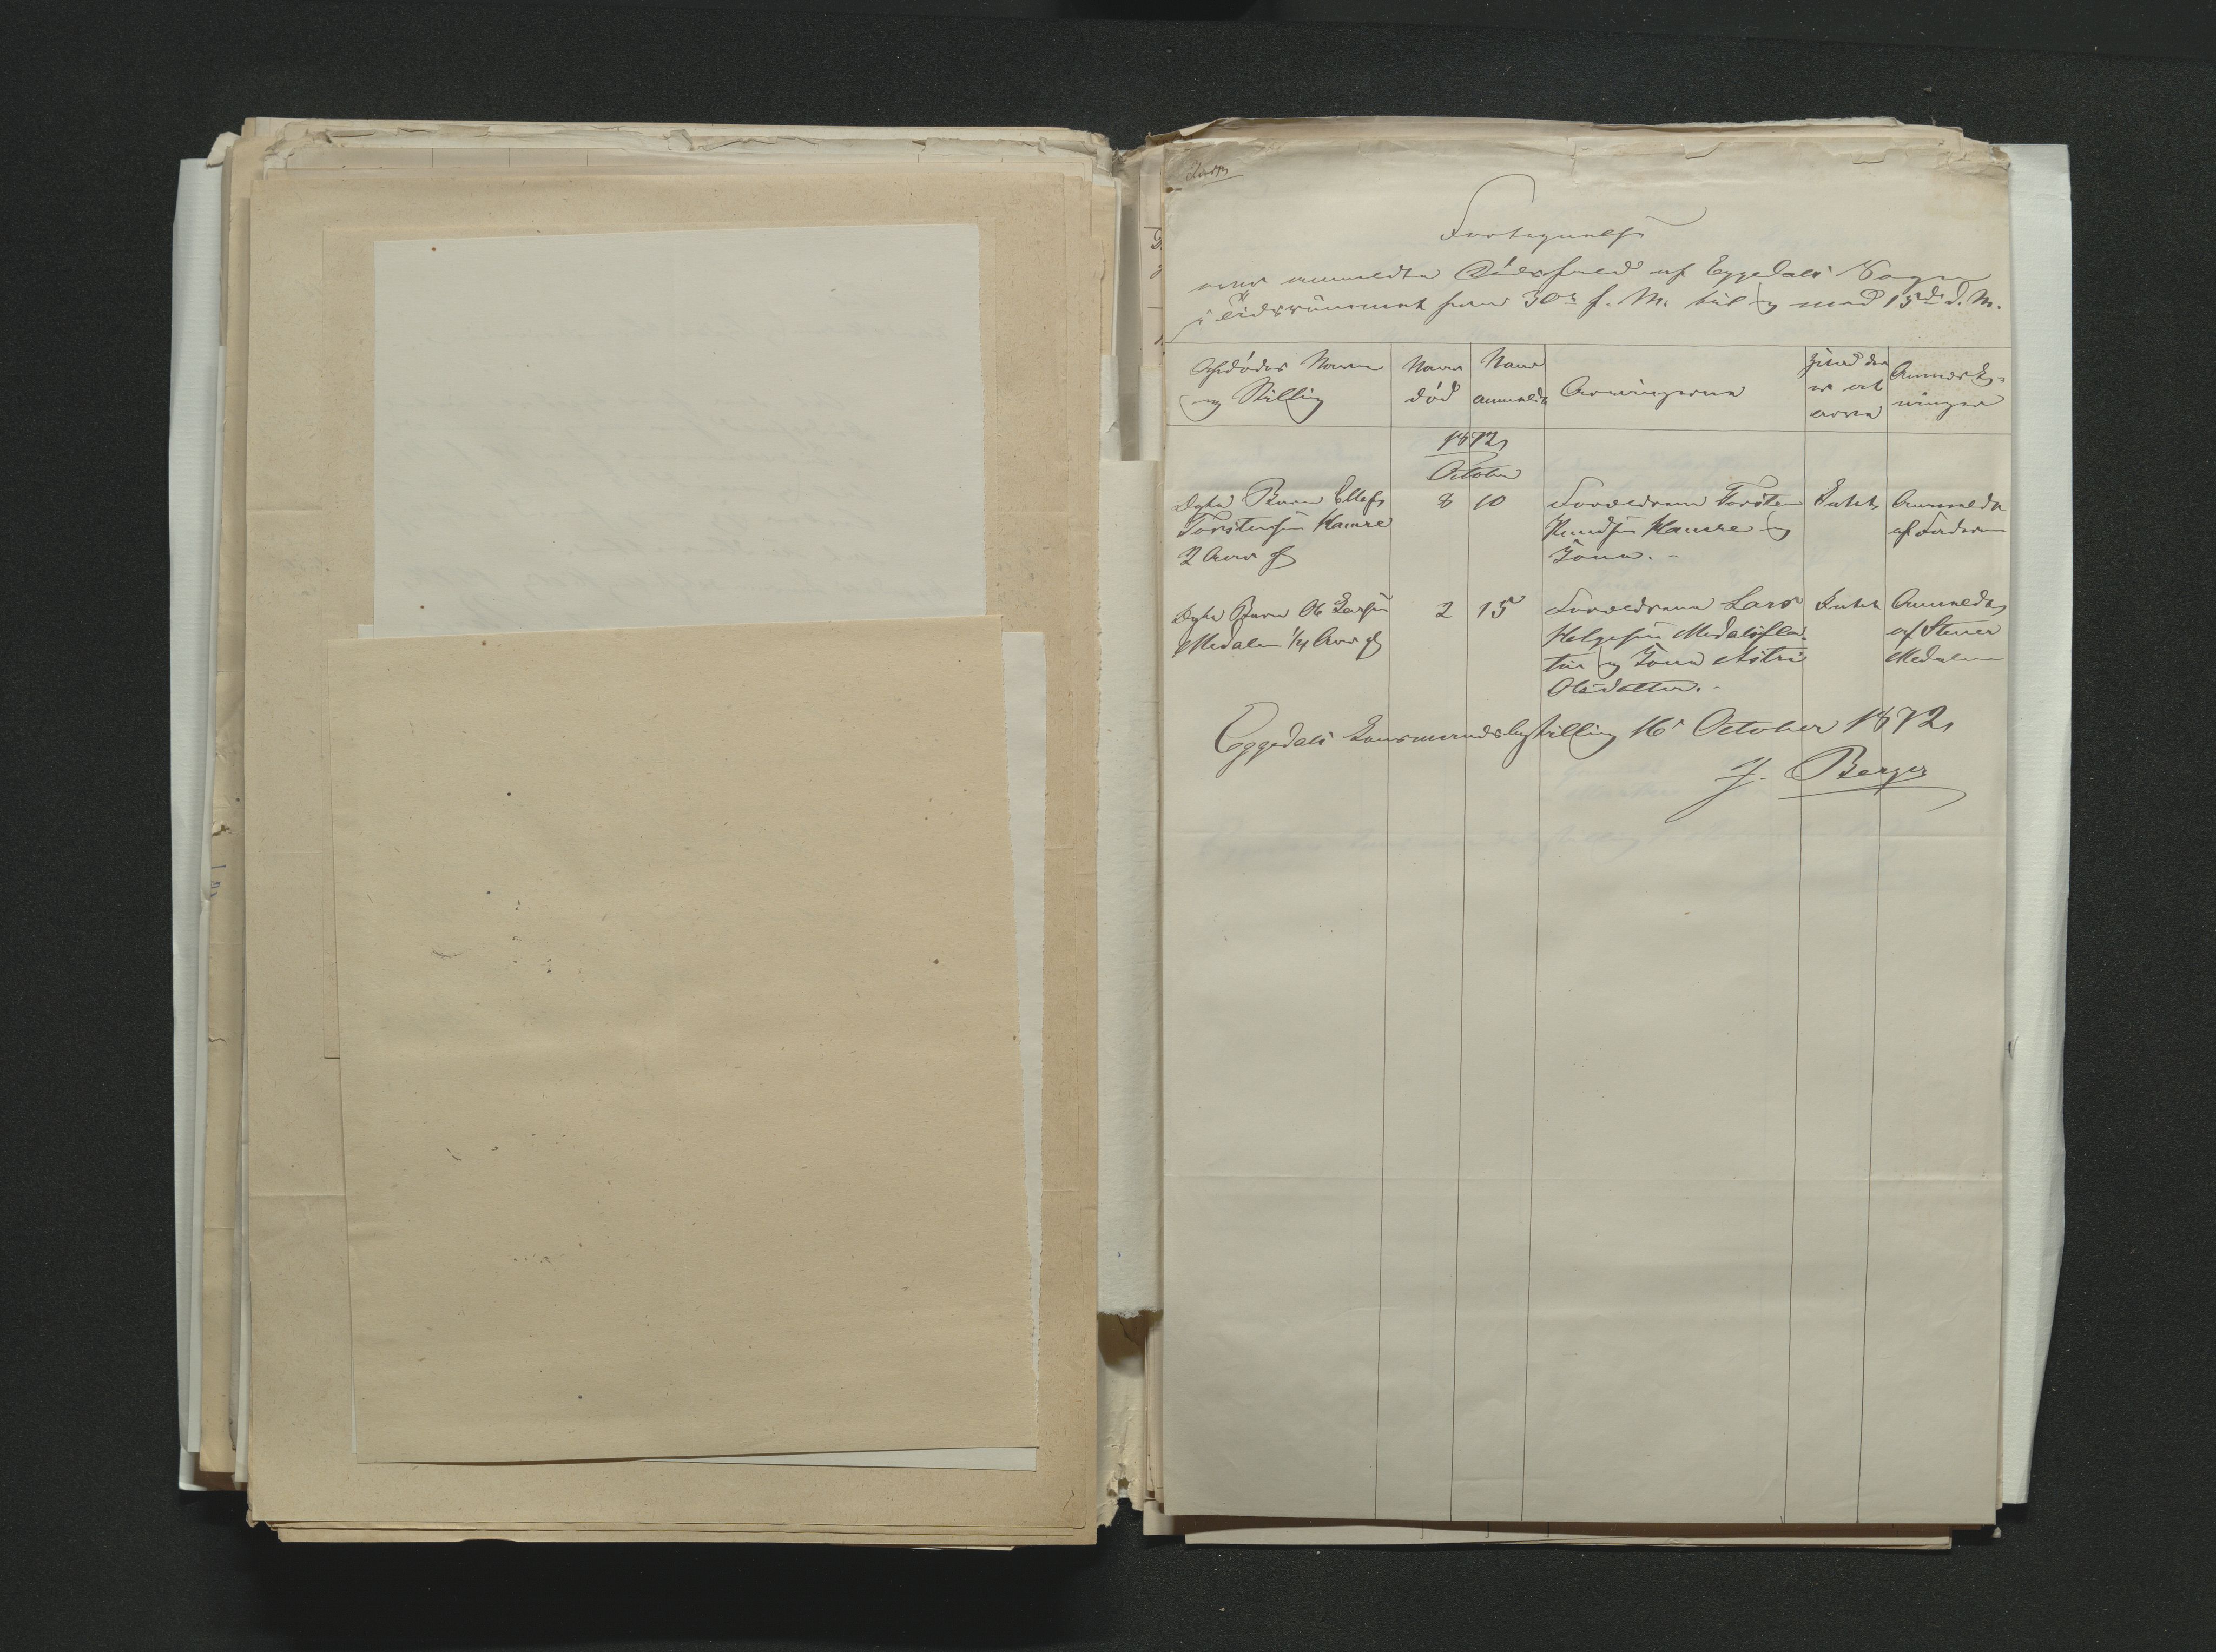 Fortegnelse
over anmeldte Dødsfald af Eggedals Sogn
i Tidsrummet fra 30te f. M. til og med 15de d. M.
Afdødes Navn
og Stilling
Naar
død
Naar
anmeldt
Arvingerne
Hvad der
er at
arve
Anmærk-
ninger
1872
October
Ægte Barn Ellef
Torstensen Kamre
2 Aar gl
8
10
Forældrene Torsten
Knudsen Kamre og
Kone. -
Intet
Anmeldt
af Faderen
Ægte Barn Ole Larsen
Medalen 1/4 Aar gl
2
15
Forældrene Lars
Helgesen Medalsfla-
ten og Kone Astri
Olsdatter. -
Intet
Anmeldt
af Stener
Medalen
Eggedals Lensmandsbestilling 16 October 1872
J. Berger